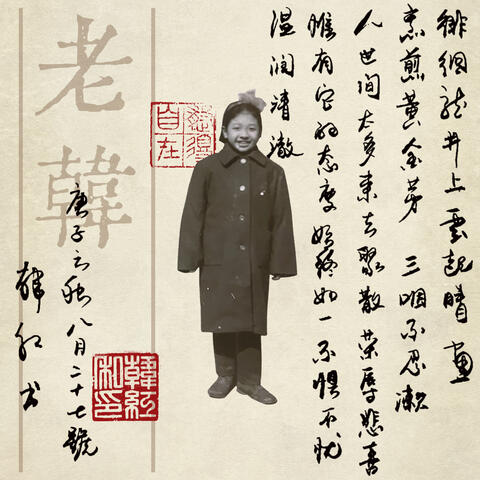 徘徊龍井上 雲起晴晝
烹煎黃金芽 三咽不忍漱
人世间 太多来去聚散荣辱悲喜
惟有它的态度始终如一不惧不忧
温润清澈
自在
老韓
庚子之秋八月二十七號
韓红书
韓紅
私印